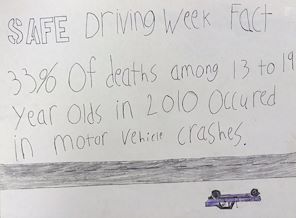 SAFE Driving Week Fact
33% Of deaths among 13 to 19
year olds in 2010 Occured
in motor vehicle crashes.